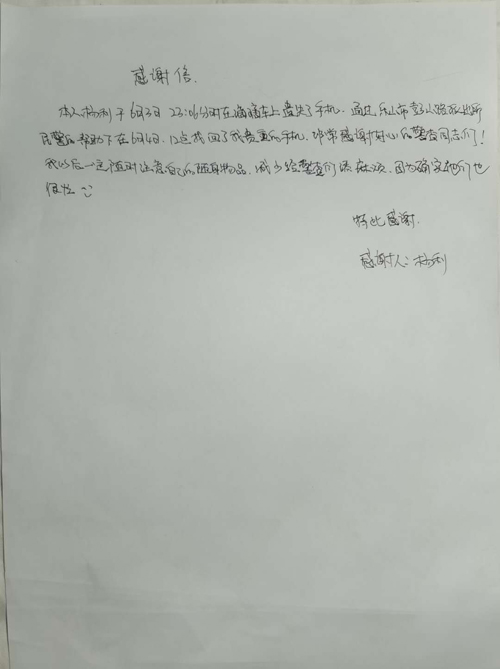 感谢信.
本人杨利于6月3日23:06分时在滴滴车上遗失了手机. 通过乐山市嘉州路派出所
民警的帮助下在6月4日.12点找回了我贵重的手机. 非常感谢耐心的警查同志们!
我以后一定随时注意自己的随身物品. 减少给警查们添麻烦. 因为确实他们也
很忙
特此感谢.
感谢人:杨利